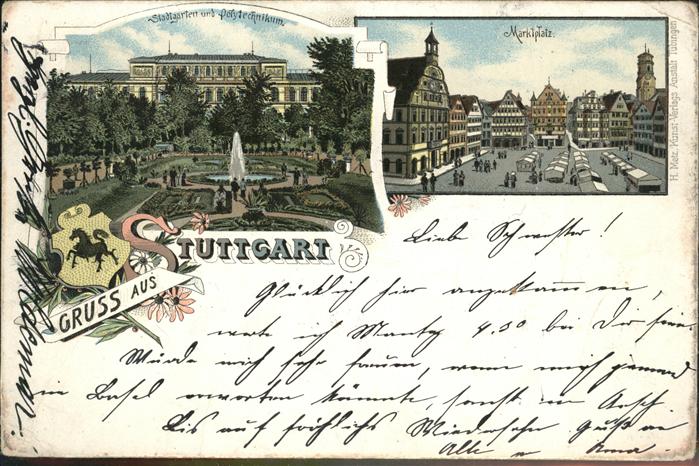 Stadtgarten und Polytechnikum.
Marktplatz.
H. Metz, Kunst-Verlags Anstalt Tübingen
STUTTGART
GRUSS AUS
Liebe Schwester!
Glücklich hier angekommen,
werde ich Montag 4.30 bei Dir sein
Würde mich sehr freuen, wenn mich jemand
in Basel erwarten könnte, sonst
Bis auf fröhliches Wiedersehn Gruß an
Alle